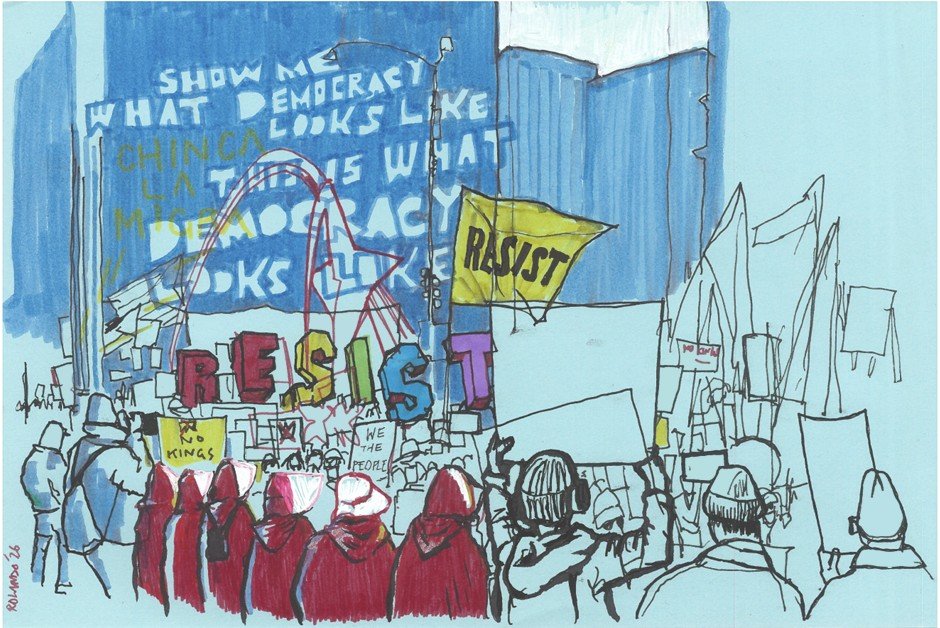 SHOW ME
WHAT DEMOCRACY
LOOKS LIKE
THIS IS WHAT
DEMOCRACY
LOOKS LIKE
CHINGA
LA
MIGRA
RESIST
RESIST
NO
KINGS
WE
THE
PEOPLE
ROLANDO '26